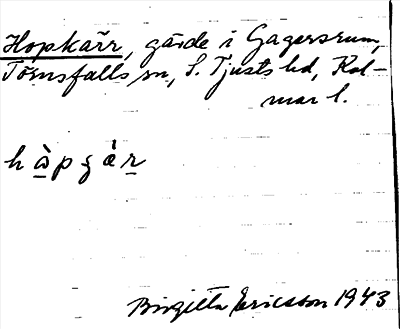 Hopkärr, gärde i Gagersrum,
Törnsfalls sn, S. Tjusts hd, Kal-
mar l.
Birgitta Ericsson 1943